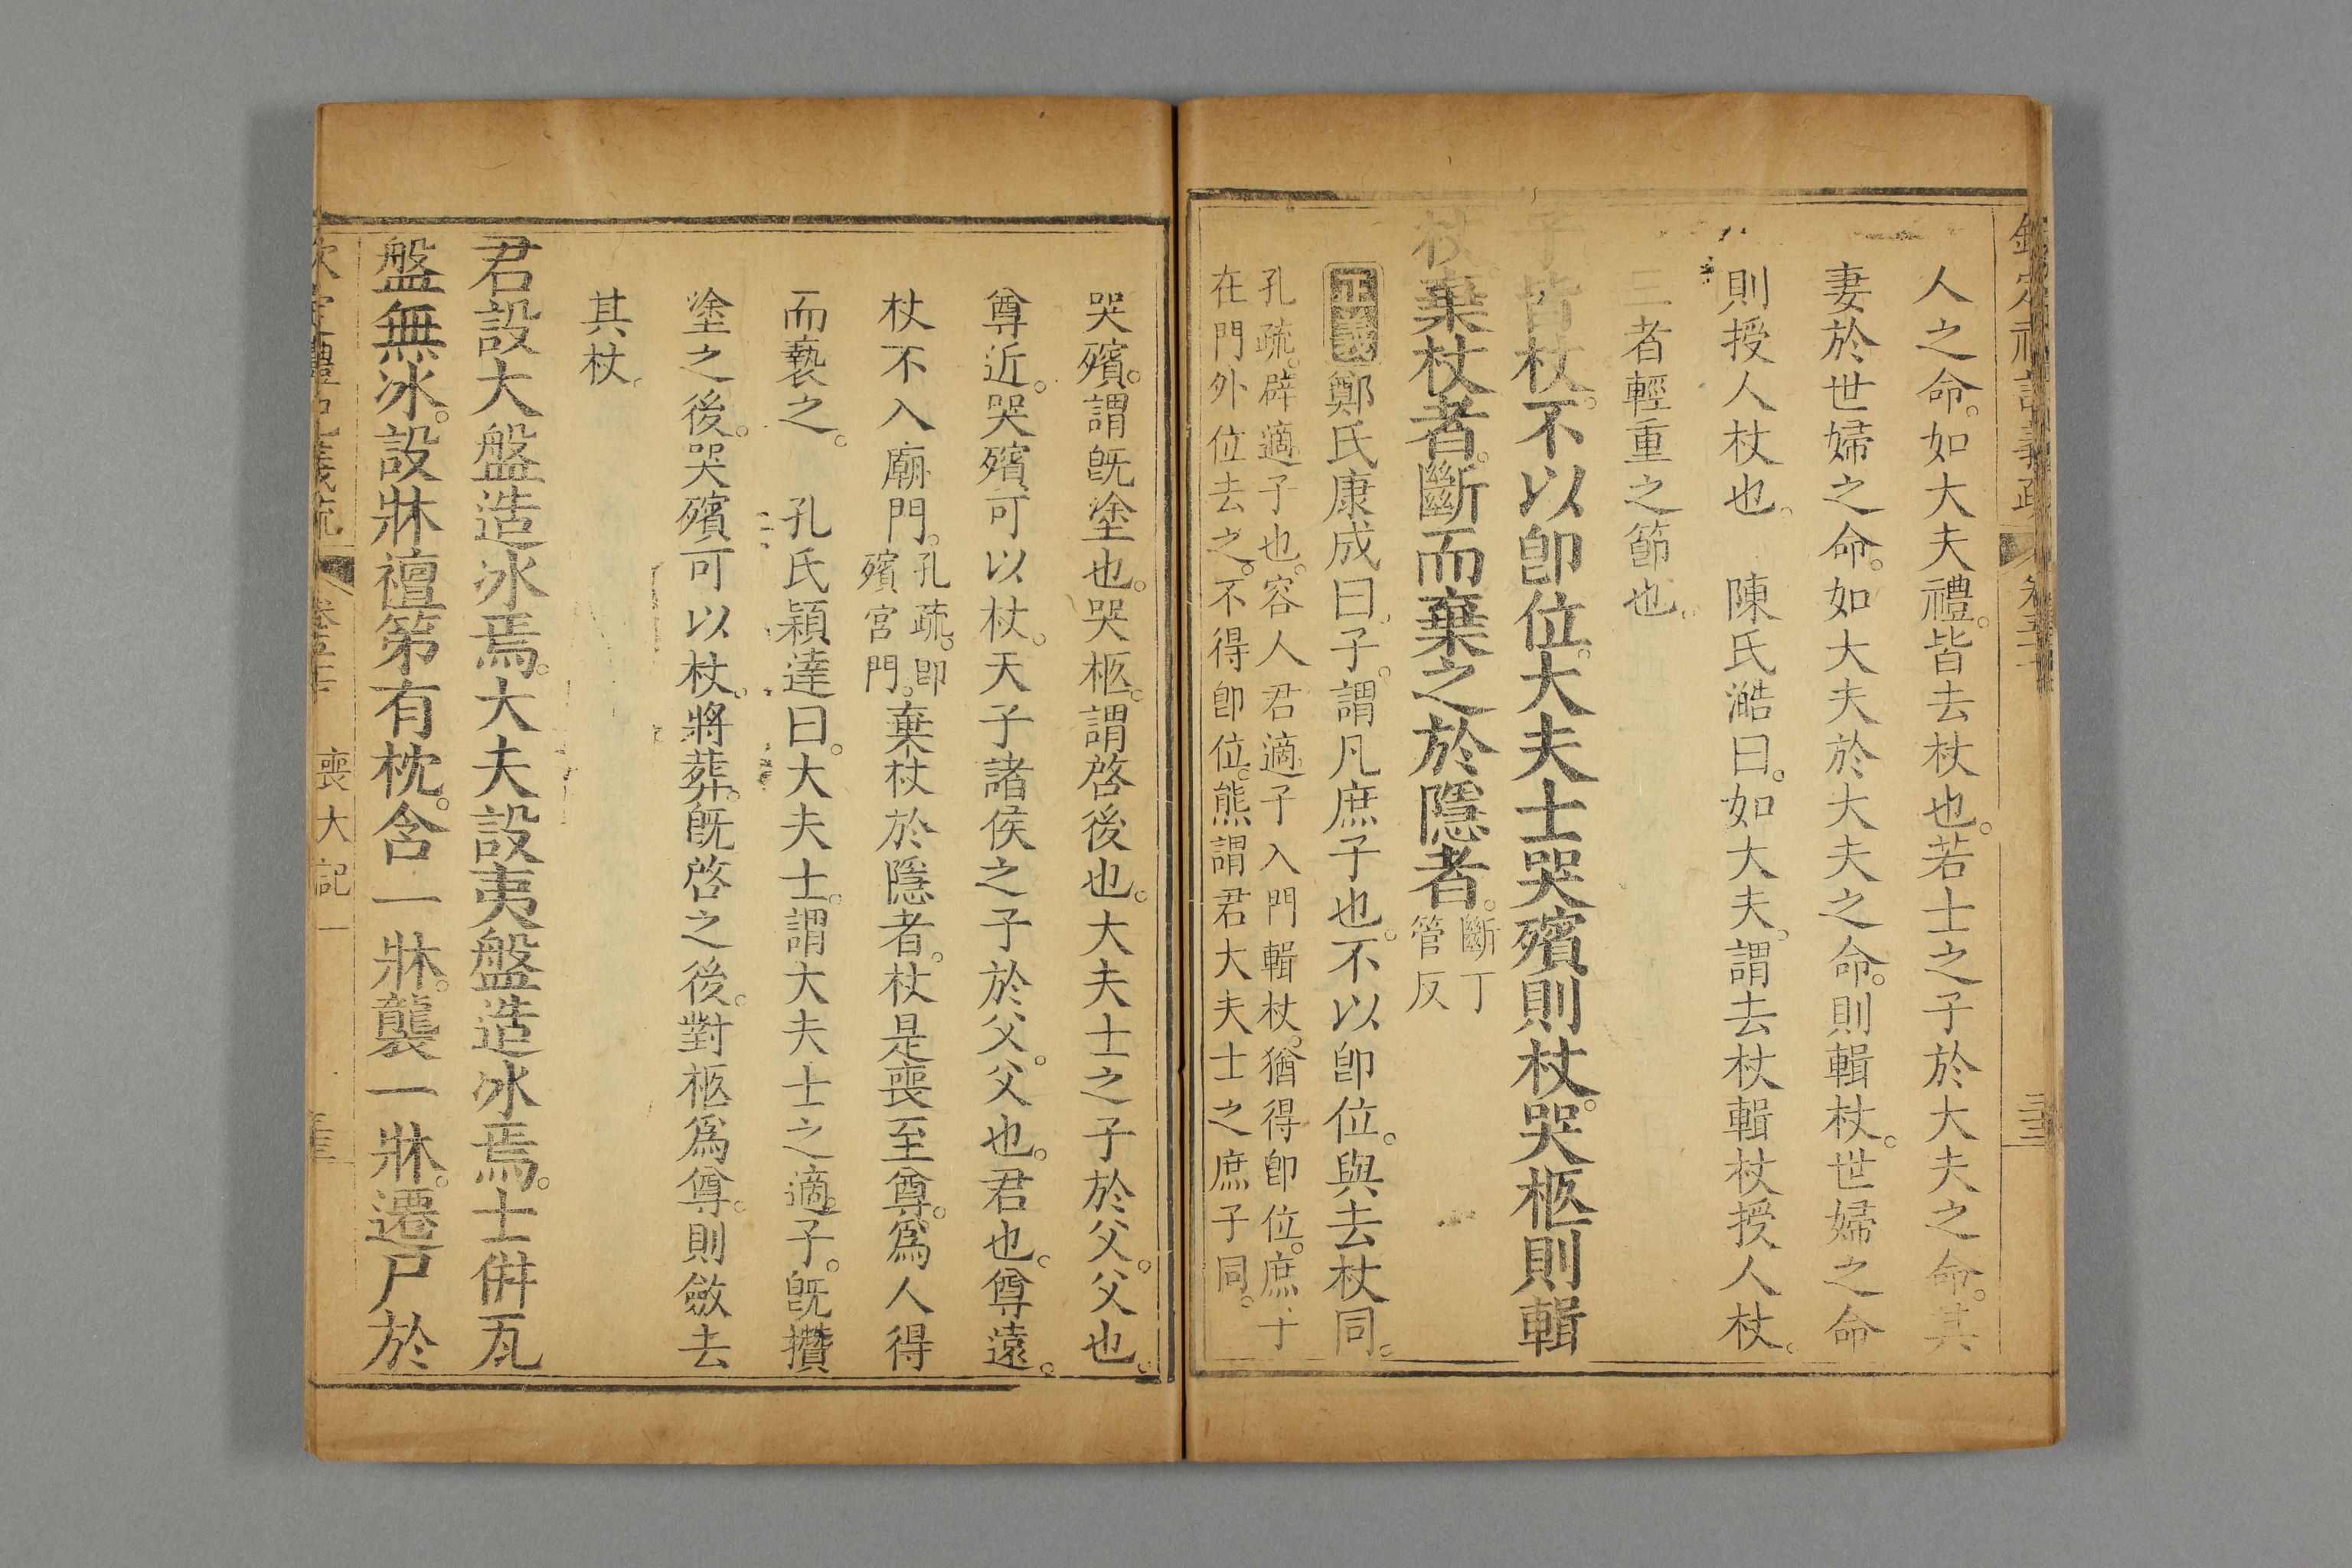 欽定禮記義疏 卷五十 三三
人之命。如大夫禮。皆去杖也。若士之子於大夫之命。其
妻於世婦之命。如大夫於大夫之命。則輯杖。世婦之命
則授人杖也。 陳氏澔曰。如大夫。謂去杖輯杖授人杖。
三者輕重之節也。
子皆杖。不以卽位。大夫士哭殯則杖。哭柩則輯
杖。棄杖者。斷而棄之於隱者。斷丁
管反
正義 鄭氏康成曰。子。謂凡庶子也。不以卽位。與去杖同。
孔疏。辟適子也。容人君適子入門輯杖。猶得卽位。庶子
在門外位去之。不得卽位。熊謂君大夫士之庶子同。
哭殯。謂旣塗也。哭柩。謂啓後也。大夫士之子於父。父也。
尊近。哭殯可以杖。天子諸侯之子於父。父也。君也。尊遠。
杖不入廟門。孔疏。卽
殯宮門。
棄杖於隱者。杖是喪至尊。爲人得
而褻之。 孔氏穎達曰。大夫士。謂大夫士之適子。旣攢
塗之後。哭殯可以杖。將葬。旣啓之後。對柩爲尊。則斂去
其杖。
君設大盤造冰焉。大夫設夷盤造冰焉。士併瓦
盤無冰。設牀襢第有枕。含一牀。襲一牀。遷尸於
欽定禮記義疏 卷五十 喪大記一 三三